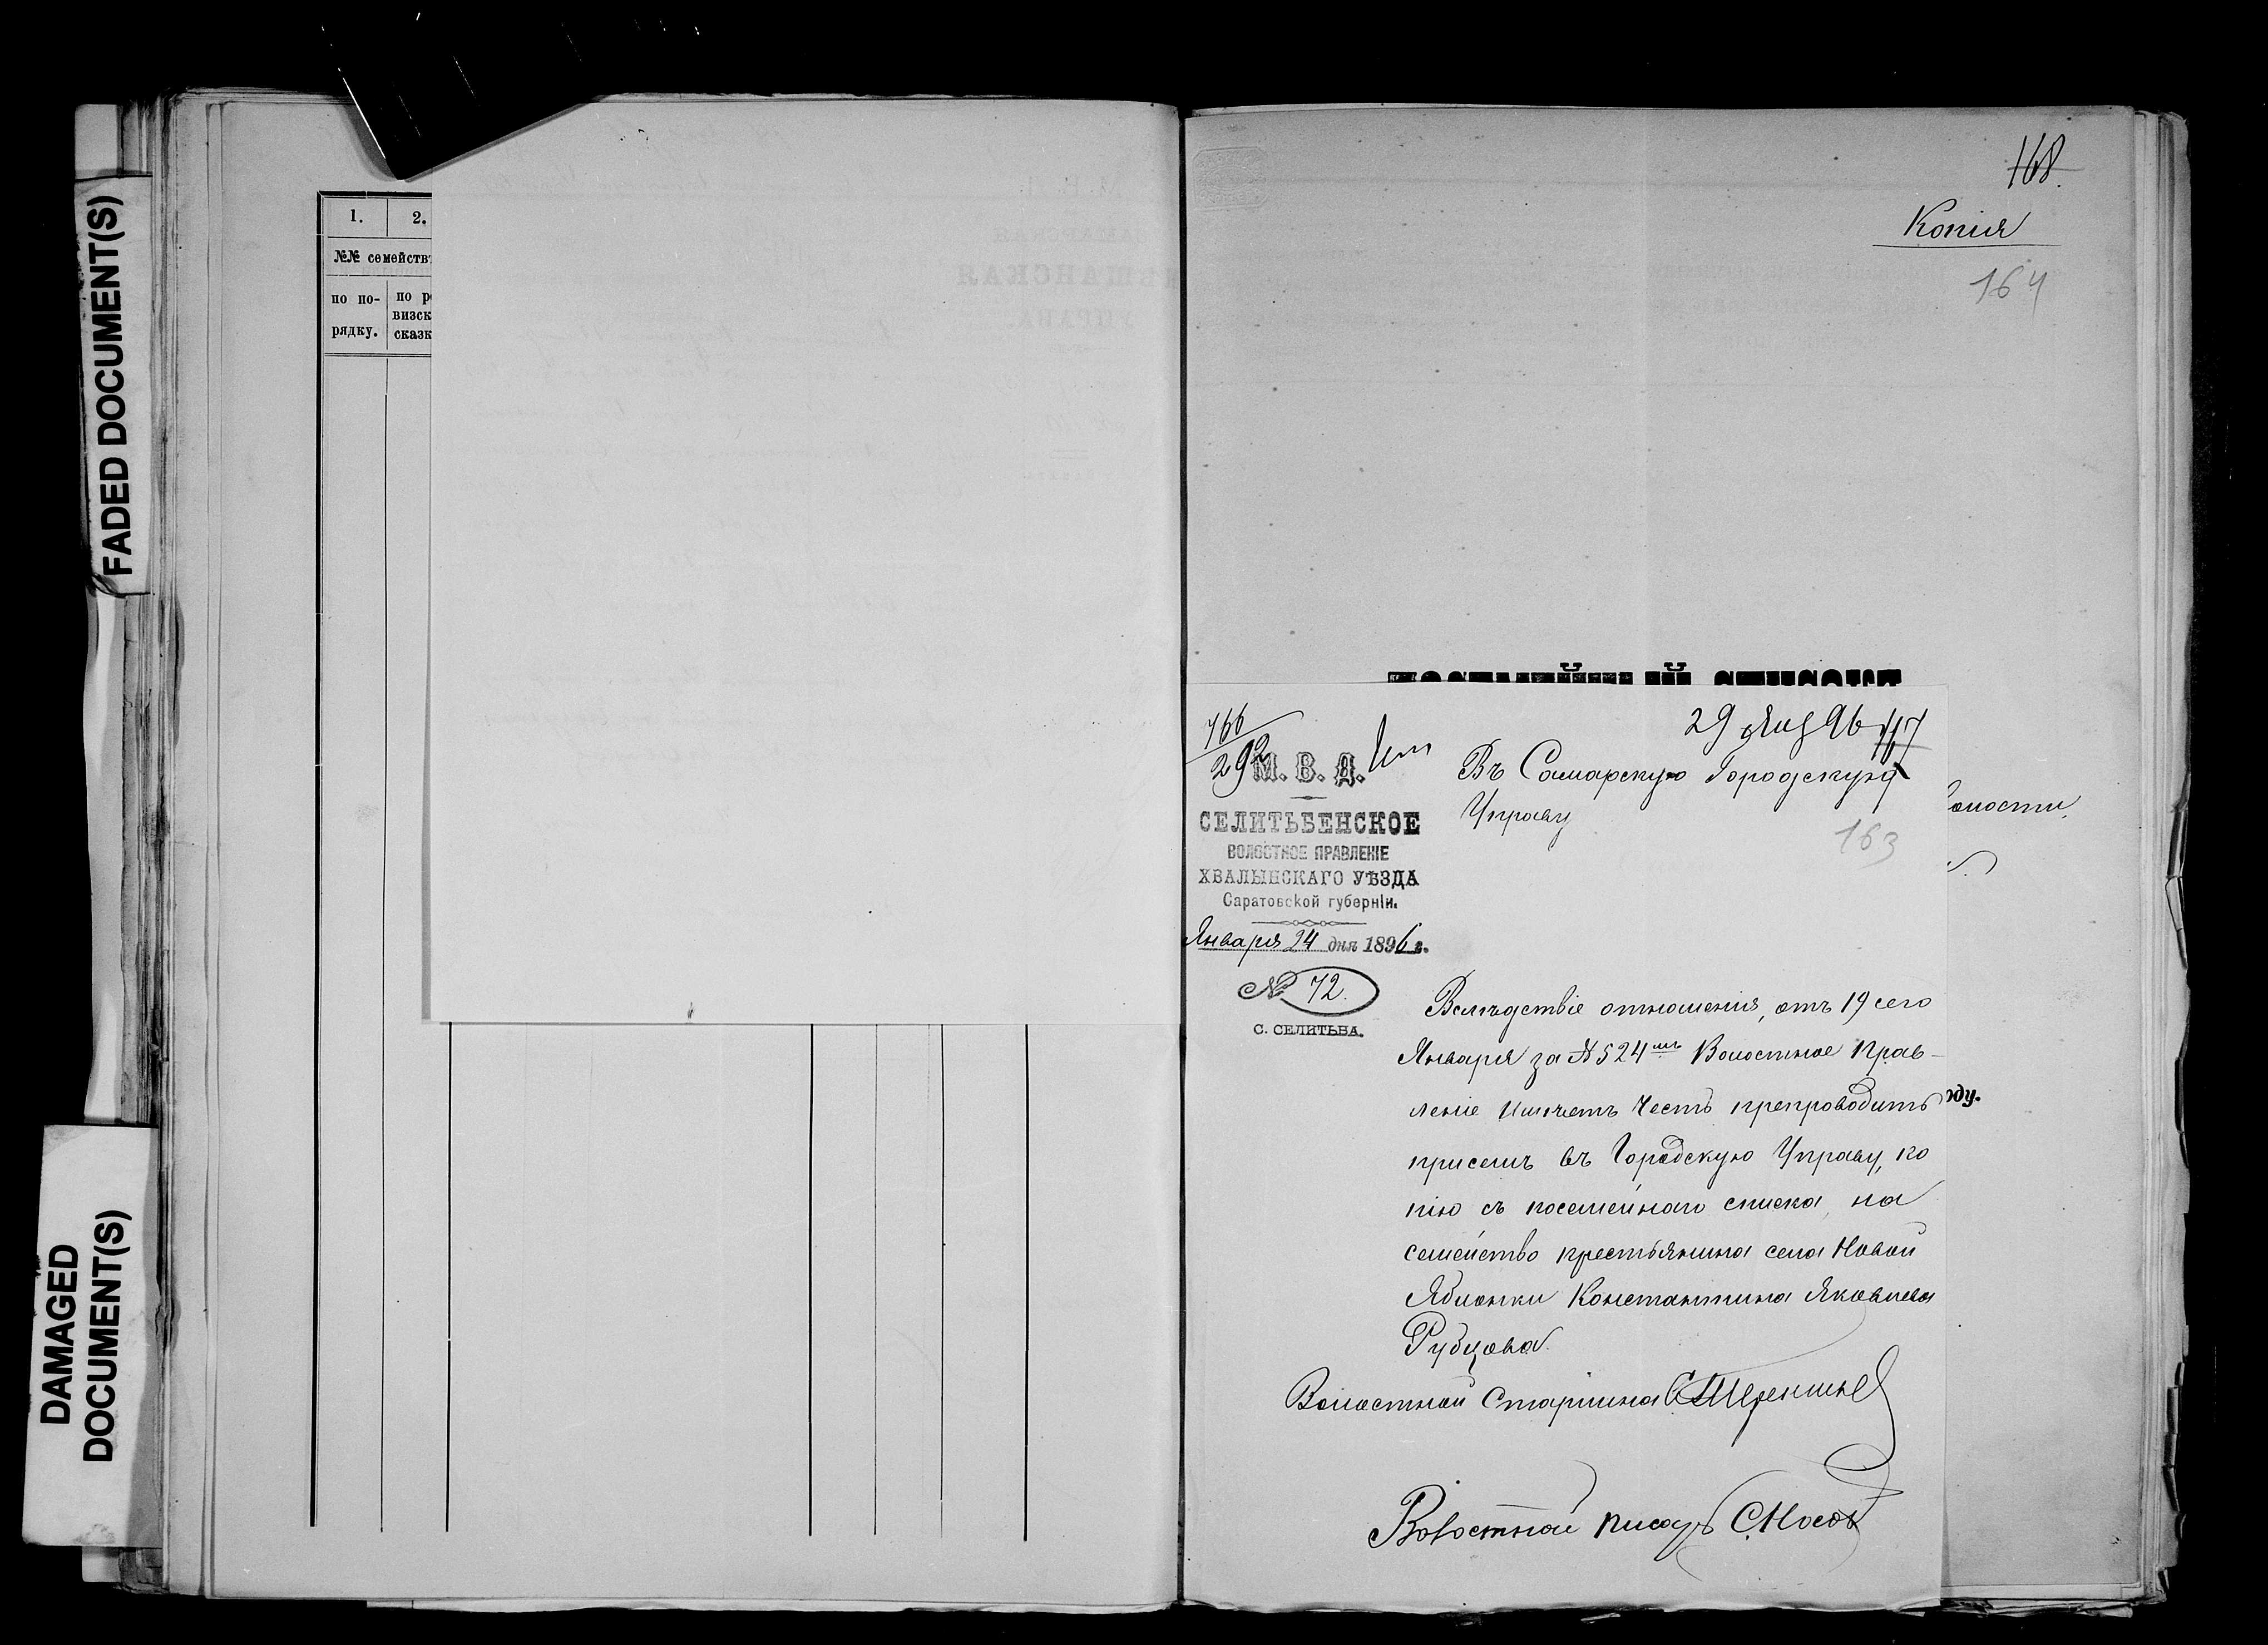 FADED DOCUMENT(S)
DAMAGED
DOCUMENT(S)
1. 2.
№№ семейств
по по- по р
рядку. визск
сказк
168.
Копія
164
29 Янв 96
167
166
292
М. В. Д.
СЕЛИТЬБЕНСКОЕ
ВОЛОСТНОЕ ПРАВЛЕНІЕ
ХВАЛЫНСКАГО УѢЗДА
Саратовской губерніи.
Января 24 дня 1896 г.
№ 72.
С. СЕЛИТЬБА.
Въ Самарскую Городскую
Управу
163
волости,
оду.
Вслѣдствіе отношенія, отъ 19 сего
Января за № 524мъ Волостное Прав-
леніе имѣетъ честь препроводить
присемъ въ Городскую Управу, ко
пію съ посемейнаго списка, на
семейство крестьянина села Новой
Яблонки Константина Яковлева
Рубцова.
Волостной Старшина
Волостной писарь С. Носовъ